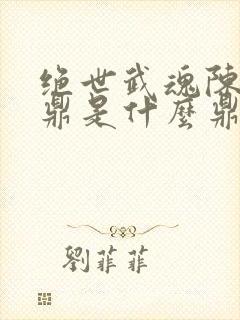 绝世武魂陈
鼎是什麼鼎
劉菲菲